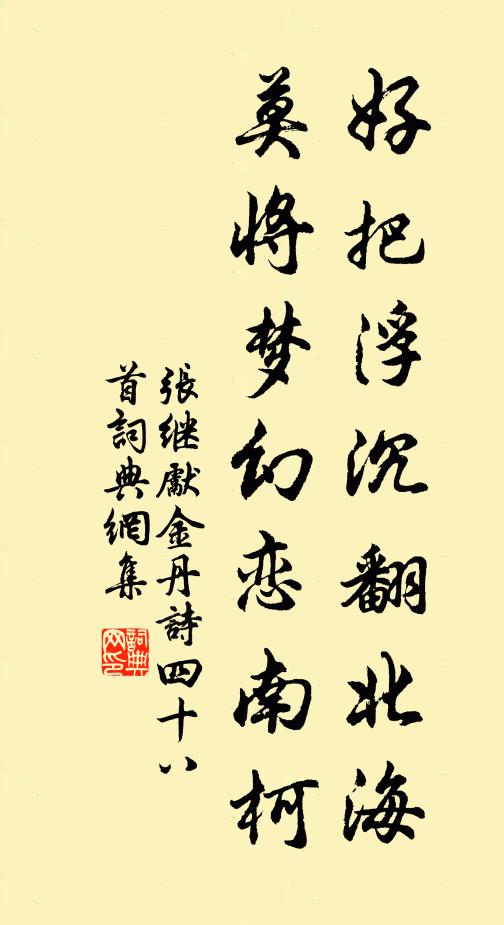 好把浮沉翻北海
莫将梦幻恋南柯
張继獻金丹詩四十八
首詞典網集
詞典
网印